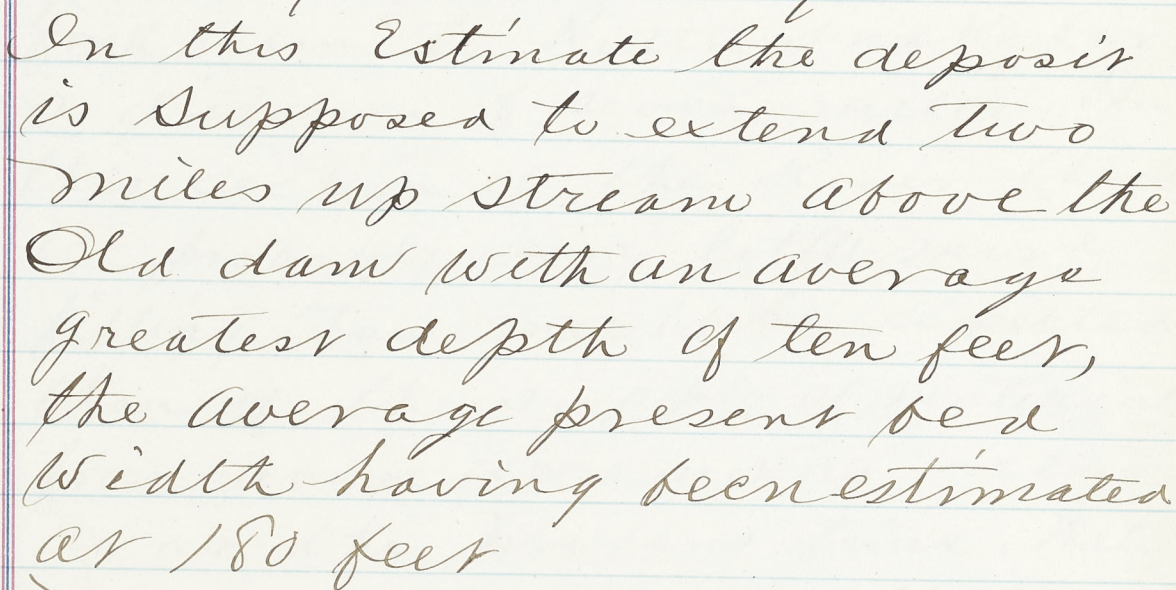 In this Estimate the deposit
is Supposed to extend two
miles up stream above the
Old dam with an average
greatest depth of ten feet,
the average present bed
width having been estimated
at 180 feet